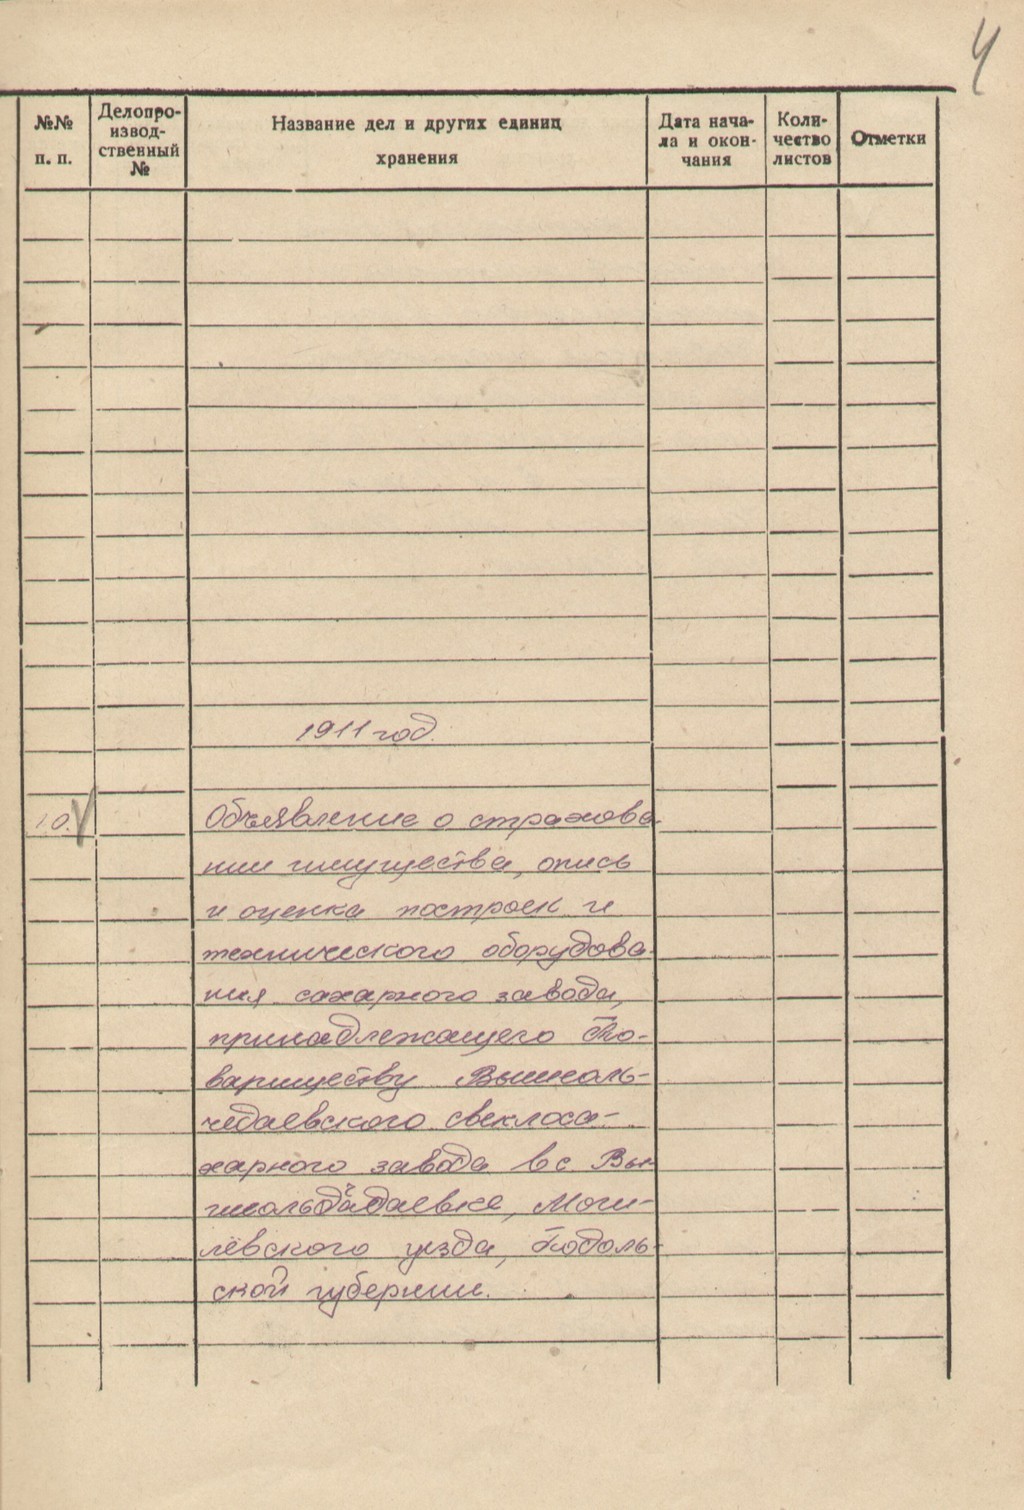 4
№№ п. п.
Делопро-
извод-
ственный
№
Название дел и других единиц
хранения
Дата нача-
ла и окон-
чания
Коли-
чество
листов
Отметки
1911 год.
10.
Объявление о страхова-
нии имущества, опись
и оценка построек и
технического оборудова-
ния сахарного завода,
принадлежащего То-
вариществу Вышеоль-
чедаевского свеклоса-
харного завода в с. Вы-
шеольчедаевке, Моги-
лёвского уезда, Подоль-
ской губернии.